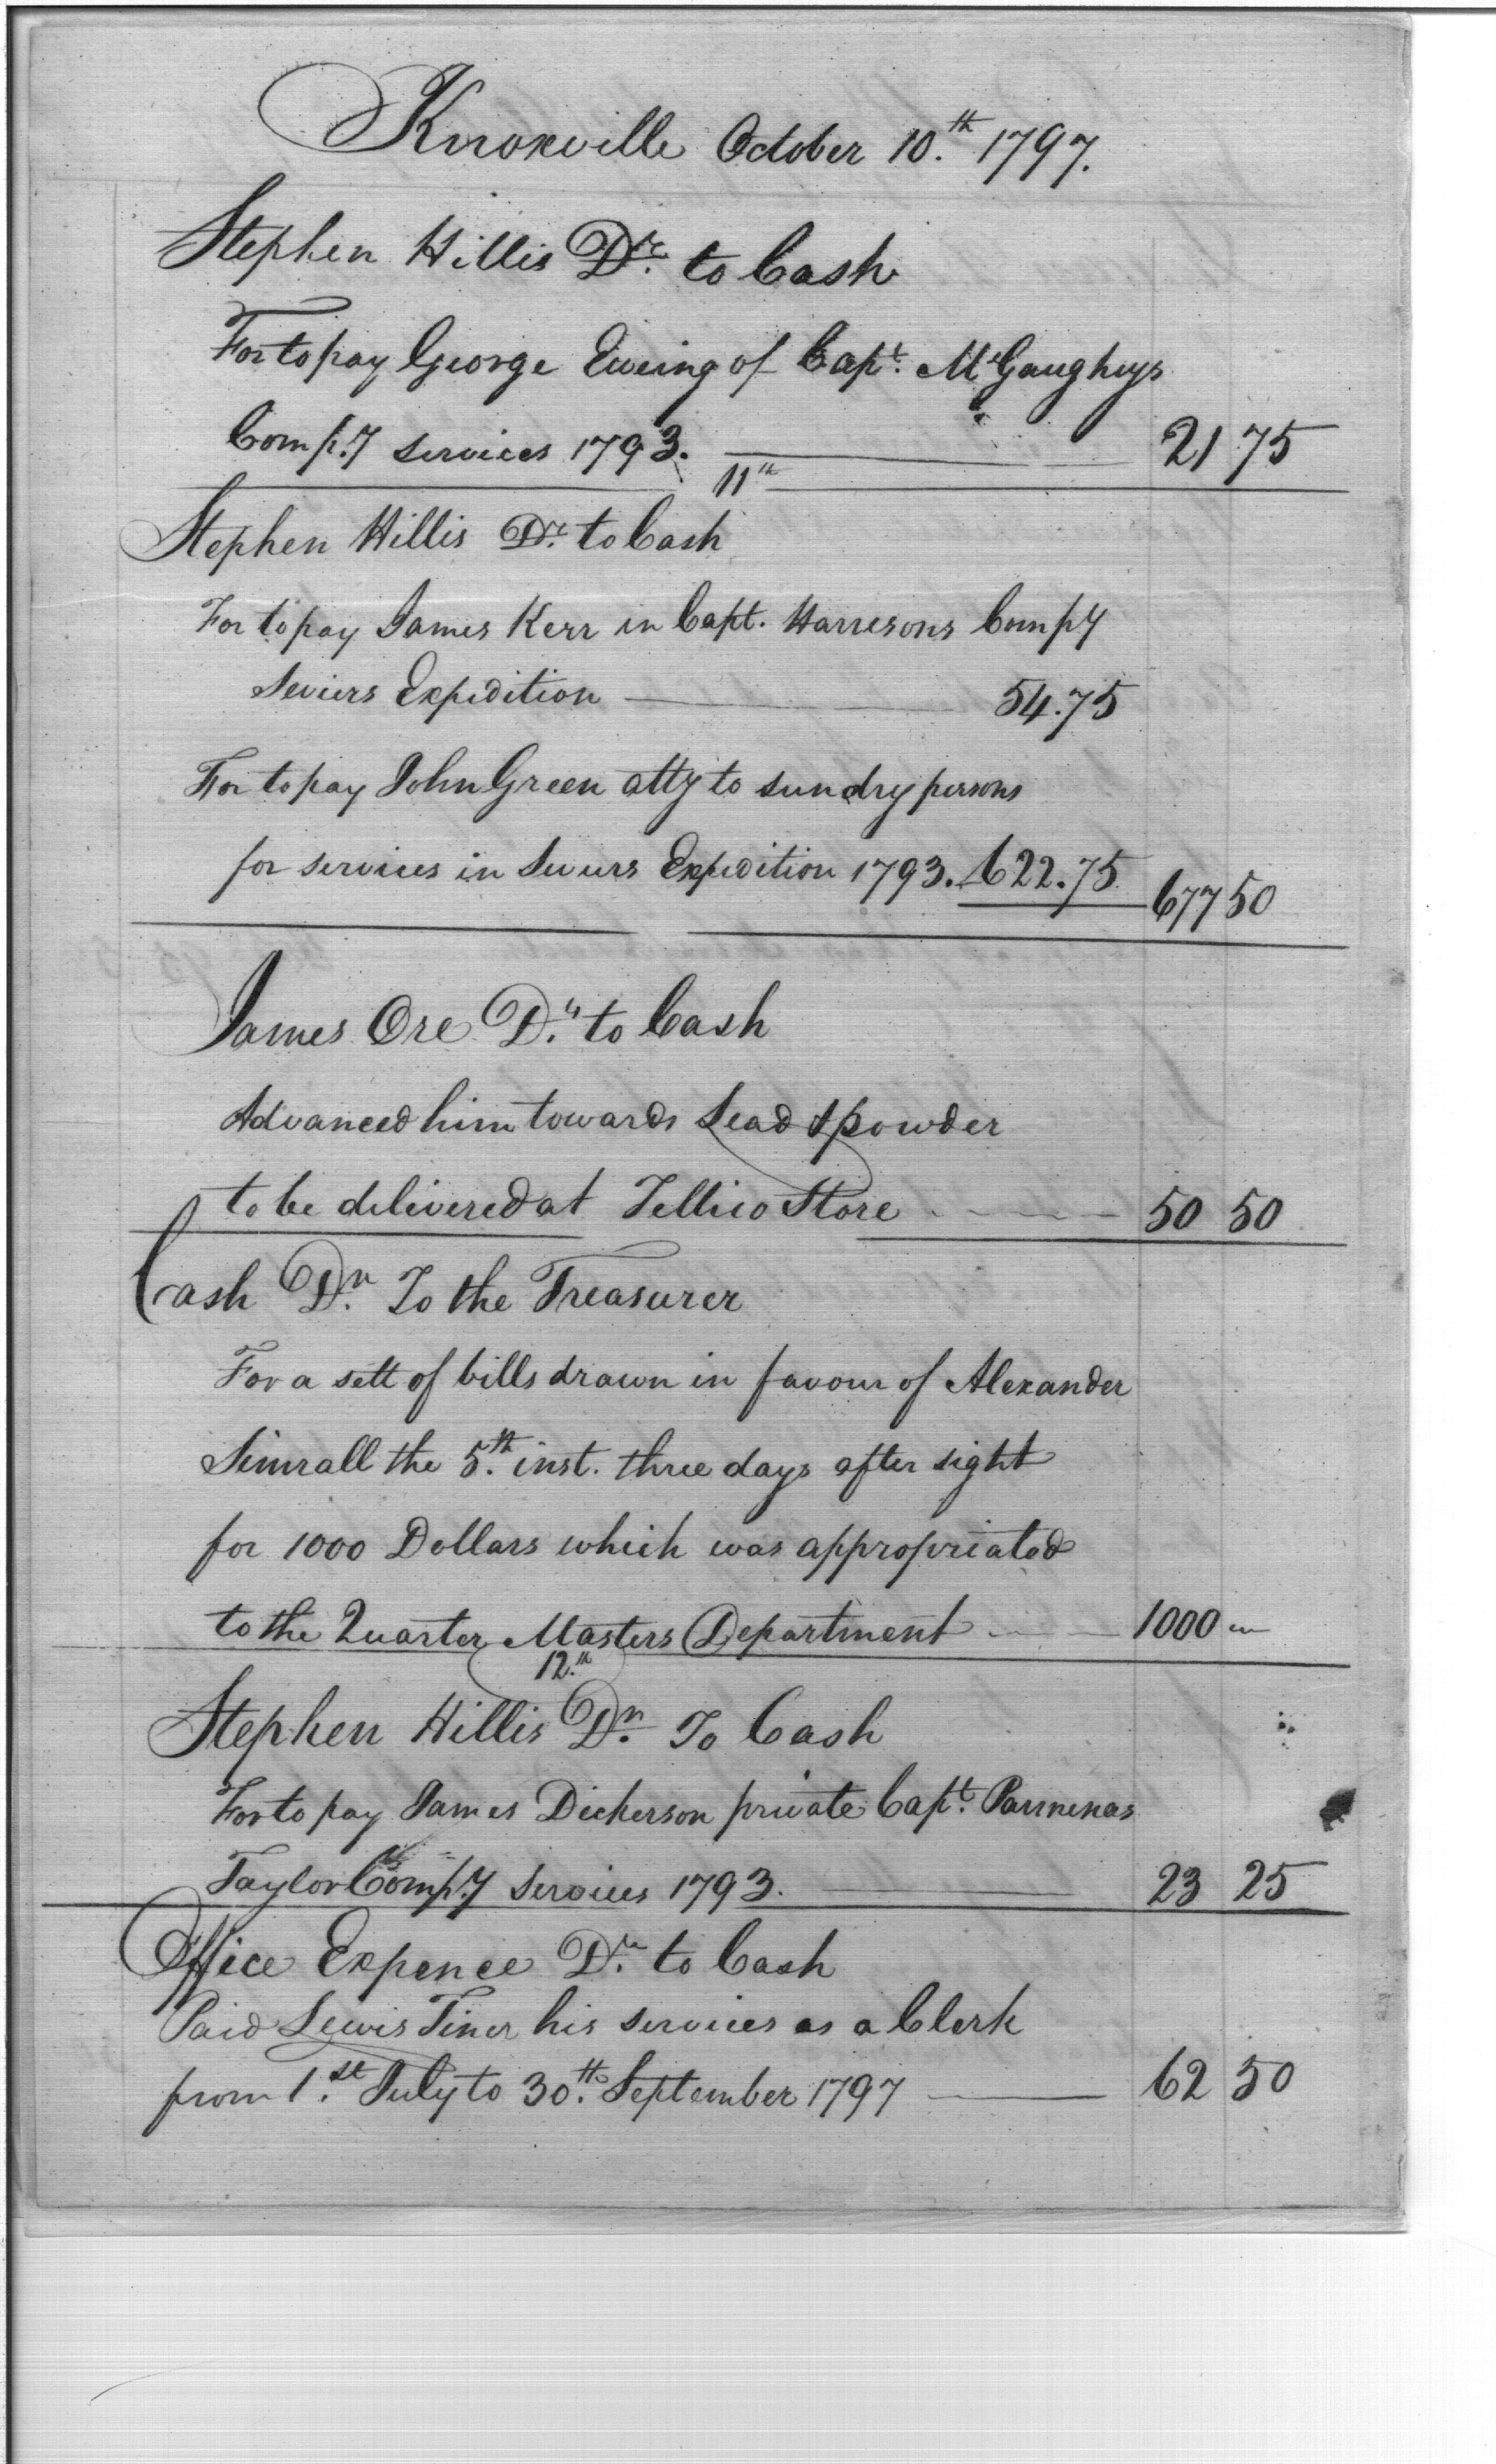 Knoxville October 10.th 1797.
Stephen Hillis Dr. to Cash
For to pay George Eweing of Capt. McGaugheys
Comp.y services 1793. 21 75
11th
Stephen Hillis Dr. to Cash
For to pay James Kerr in Capt. Harresons Compy
Seviers Expedition 54.75
For to pay John Green atty to sundry persons
for services in Seviers Expedition 1793. 622.75 677 50
James Ore Dr. to Cash
Advanced him towards Lead & powder
to be delivered at Tellico Store 50 50
Cash Dr. To the Treasurer
For a sett of bills drawn in favour of Alexander
Simrall the 5.th inst. three days after sight
for 1000 Dollars which was appropriated
to the Quarter Masters Department 1000 "
12.th
Stephen Hillis Dr. To Cash
For to pay James Dickerson private Capt. Parmenas
Taylor Comp.y Services 1793. 23 25
Office Expence Dr. to Cash
Paid Lewis Tiner his services as a Clerk
from 1.st July to 30.th September 1797 62 50